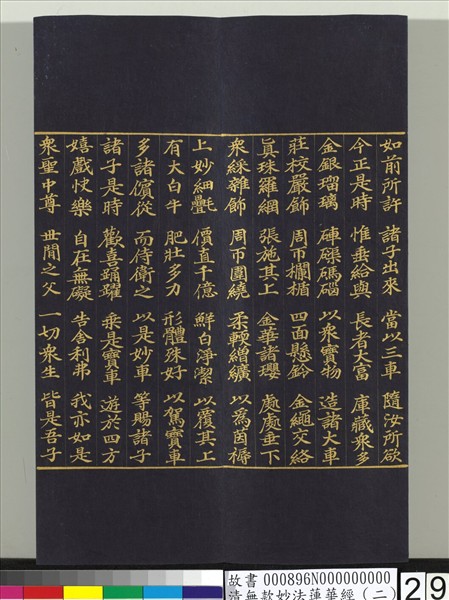 如前所許 諸子出來 當以三車 隨汝所欲
今正是時 惟垂給與 長者大富 庫藏眾多
金銀瑠璃 硨磲碼碯 以眾寶物 造諸大車
莊校嚴飾 周帀欄楯 四面懸鈴 金繩交絡
眞珠羅網 張施其上 金華諸瓔 處處垂下
衆綵雜飾 周帀圍繞 柔輭繒纊 以爲茵褥
上妙細㲲 價直千億 鮮白淨潔 以覆其上
有大白牛 肥壯多力 形體殊好 以駕寶車
多諸儐從 而侍衛之 以是妙車 等賜諸子
諸子是時 歡喜踊躍 乘是寶車 遊於四方
嬉戲快樂 自在無礙 告舍利弗 我亦如是
衆聖中尊 世間之父 一切衆生 皆是吾子
故書 000896N000000000
清無款妙法蓮華經（二）
29